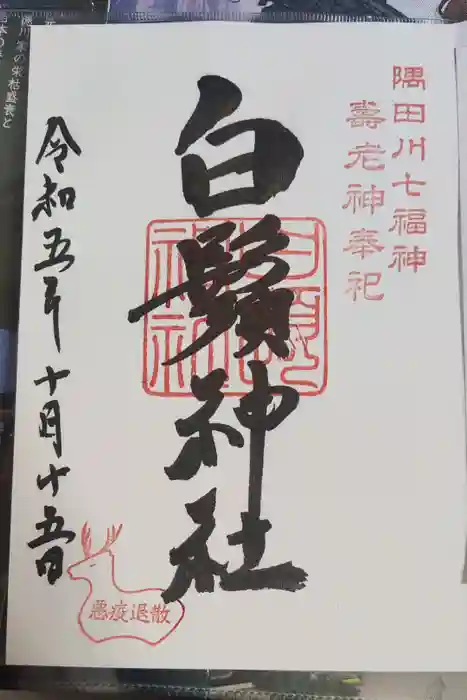 隅田川七福神
壽老神奉祀
白鬚神社
令和五年十月十五日
悪疫退散